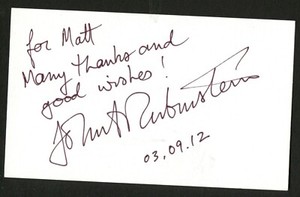 for Matt
Many thanks and
good wishes!
John Rubinstein
03.09.12